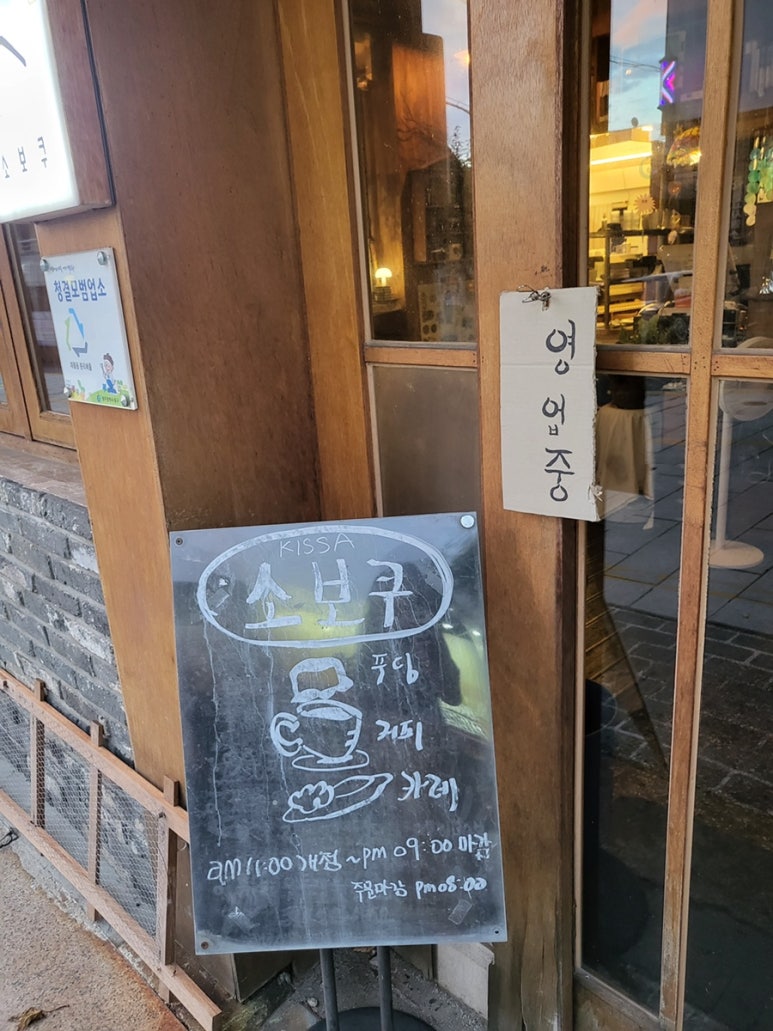 소보쿠
청결모범업소
영업중
KISSA
소보쿠
푸딩
커피
카레
am 11:00 개점 ~ pm 09:00 마감
주문마감 pm 08:00